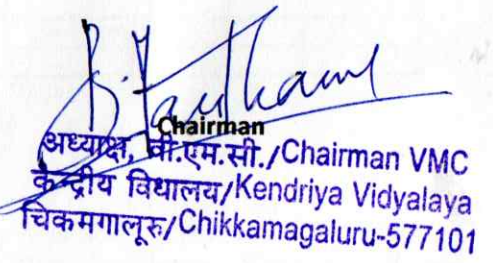 Chairman
अध्यक्ष, वी.एम.सी./Chairman VMC
केन्द्रीय विद्यालय/Kendriya Vidyalaya
चिकमगालूरु/Chikkamagaluru-577101